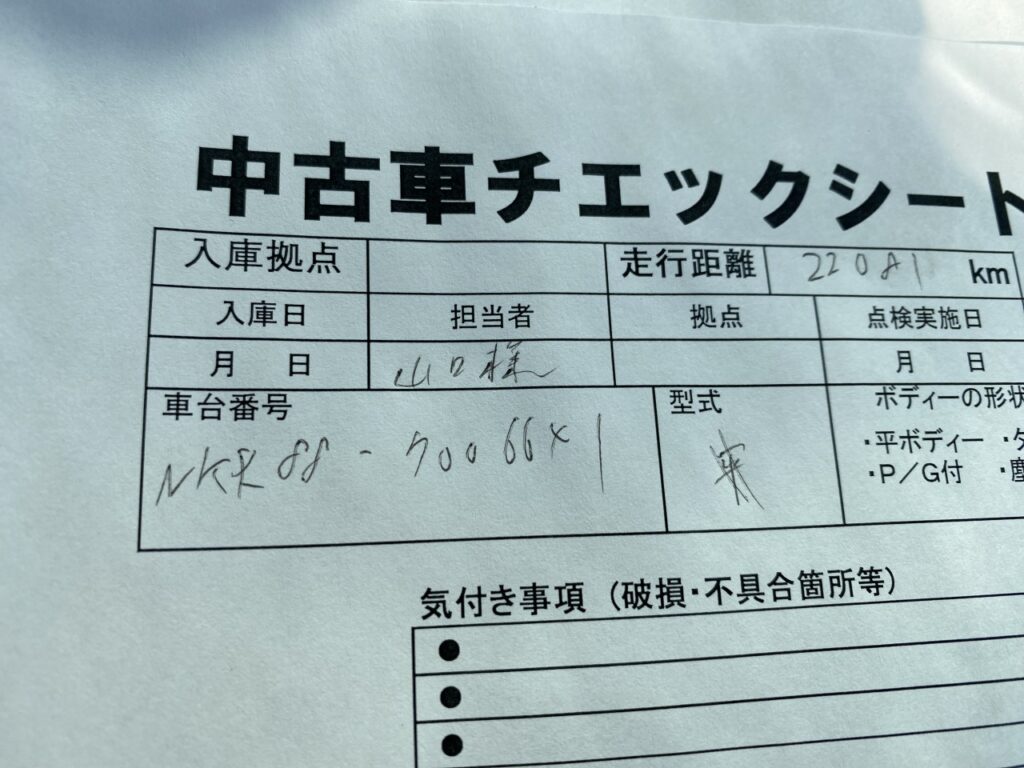 中古車チエックシート
入庫拠点 走行距離 22081 km
入庫日 担当者 拠点 点検実施日
月 日 山口様 月 日
車台番号 型式 ボディーの形状
NKR88-
・平ボディー
・P／G付 ・塵
気付き事項（破損・不具合箇所等）
●
●
●